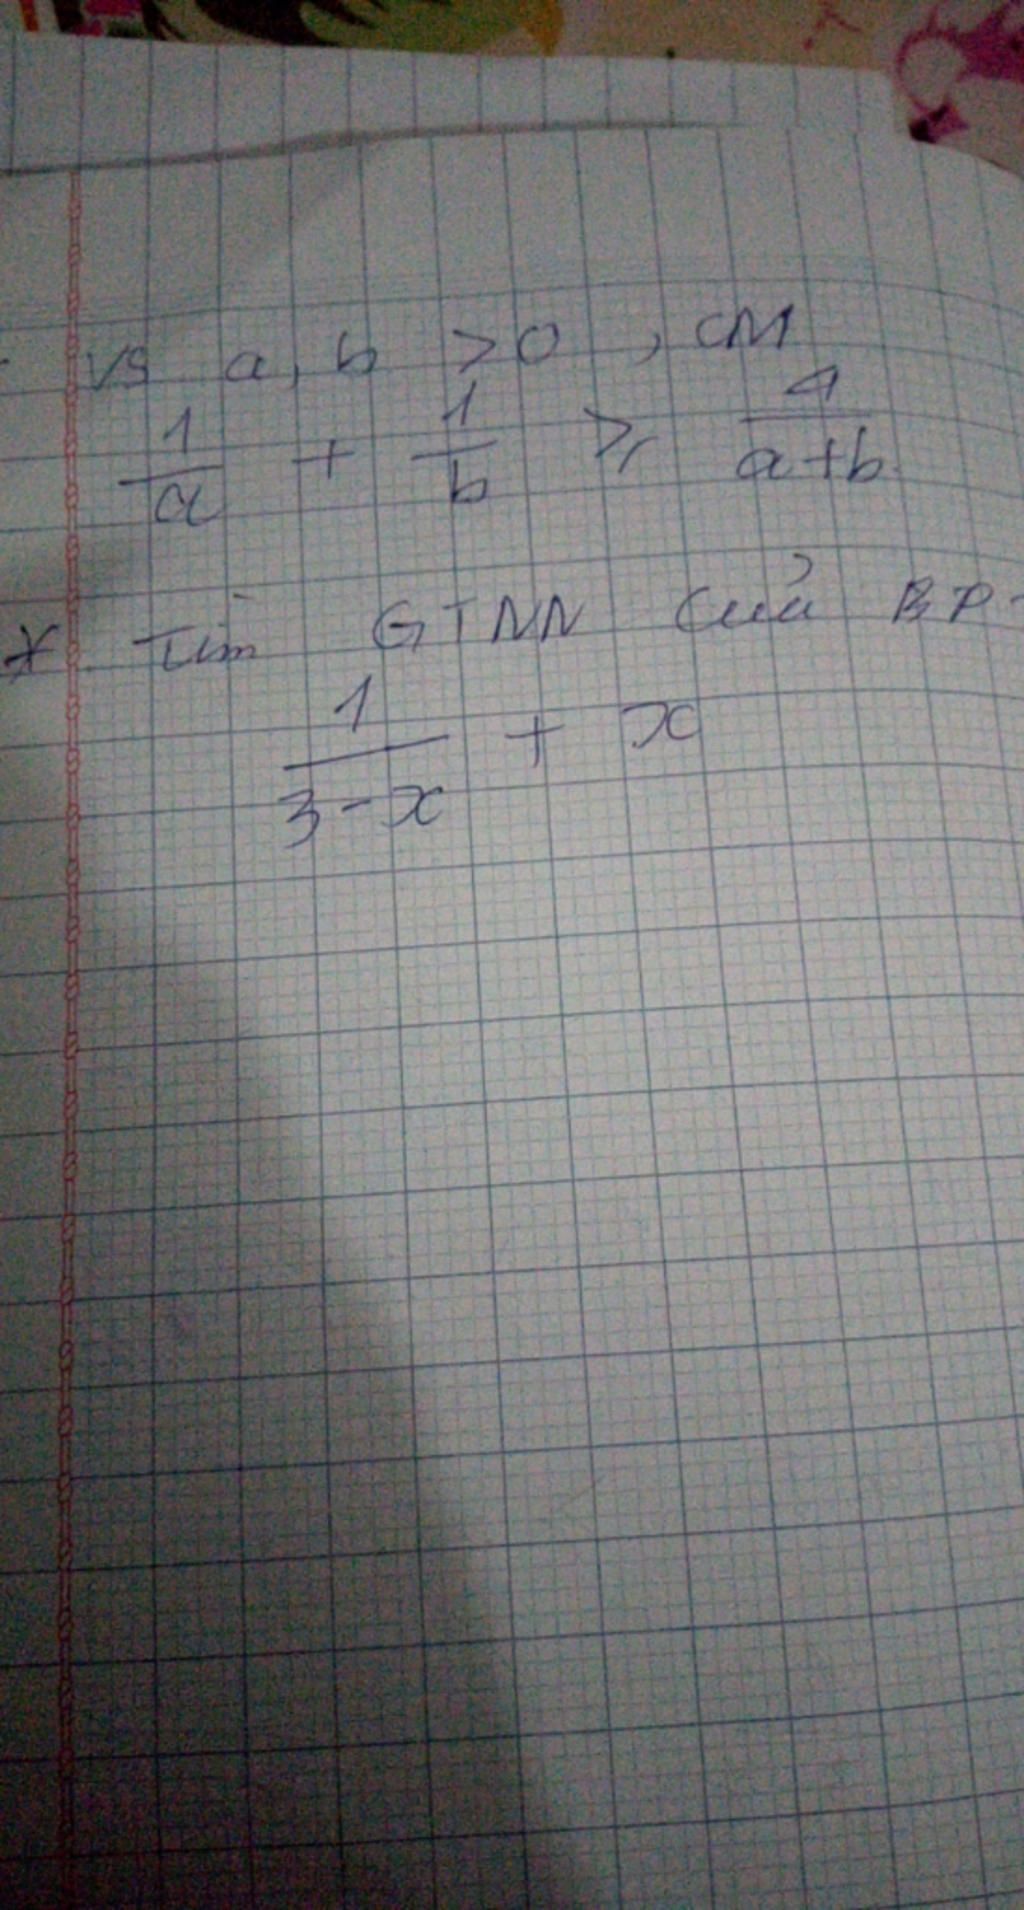 vs a, b > 0 , CM
1/a + 1/b ≥ 4/a+b
* Tìm GTNN của BP
1/3-x + x